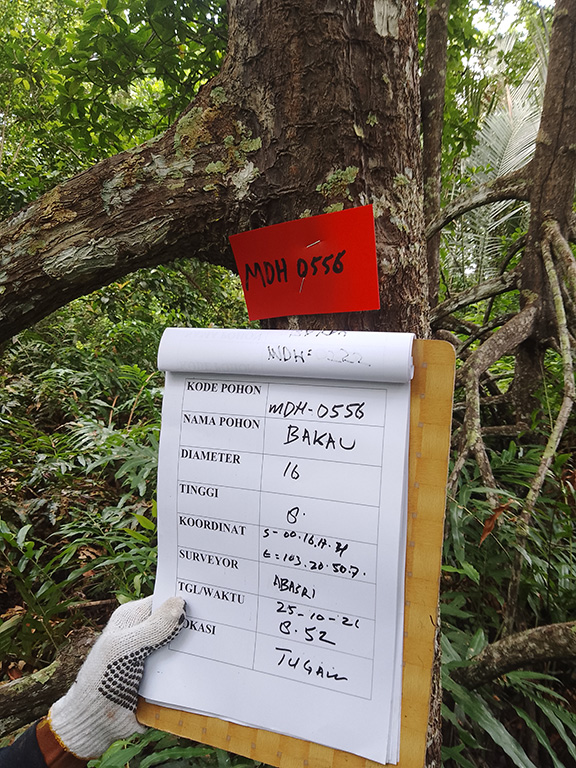 MDH 0556
MDH:
KODE POHON MDH-0556
NAMA POHON BAKAU
DIAMETER 16
TINGGI 8.
KOORDINAT S-00.16.
E=103.20.507.
SURVEYOR ABASRI
TGL/WAKTU 25-10-21
8.52
OKASI TUGAU